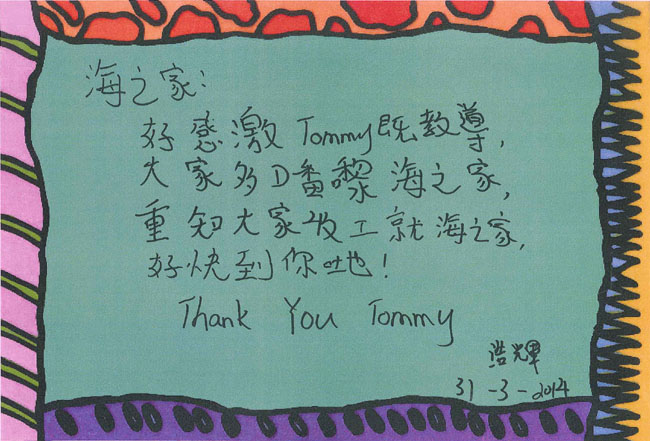 海之家:
好感激Tommy既教導,
大家多D番嚟海之家,
重知大家收工就海之家,
好快到你哋!
Thank You Tommy
浩輝
31-3-2014